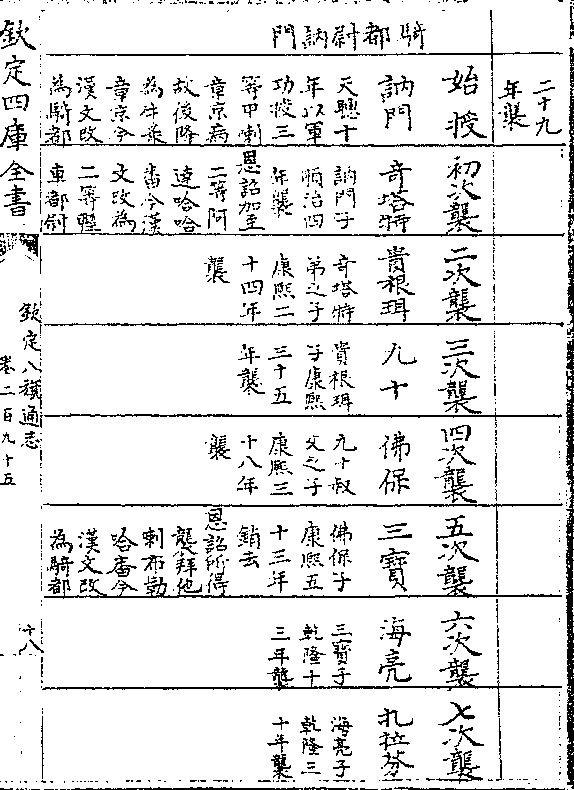 二十九
年襲
騎都尉訥門
始授
訥門
天聰十
年以軍
功授三
等甲喇
章京病
故後降
為牛彔
章京今
漢文改
為騎都
初次襲
奇塔特
訥門子
順治四
年襲
恩詔加至
二等阿
達哈哈
畨今漢
文改為
二等輕
車都尉
二次襲
貴根珥
奇塔特
弟之子
康熙二
十四年
襲
三次襲
九十
貴根珥
子康熙
三十五
年襲
四次襲
佛保
九十叔
父之子
康熙三
十八年
襲
五次襲
三寶
佛保子
康熙五
十三年
銷去
恩詔所得
襲拜他
喇布勒
哈畨今
漢文改
為騎都
六次襲
海亮
三寶子
乾隆十
三年襲
七次襲
扎拉芬
海亮子
乾隆三
十年襲
欽定四庫全書
欽定八旗通志
卷二百九十五
十八